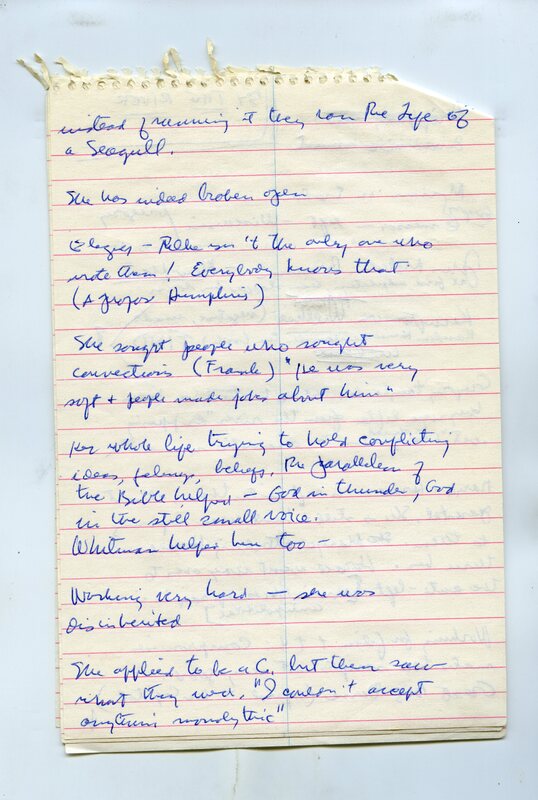 instead of running it they ran The Life of
a Seagull.
She has indeed broken open
Elegies – Rilke isn't the only one who
wrote them! Everybody knows that.
(A propos Humphries)
She sought people who sought
connections (Frank) "He was very
soft + people made jokes about him"
Her whole life trying to hold conflicting
ideas, feelings, beliefs. The parallelism of
the Bible helped – God in thunder, God
in the still small voice.
Whitman helped him too –
Working very hard – she was
disinherited
She applied to be a Co. but then saw
what they were. "I couldn't accept
anything monolythic"